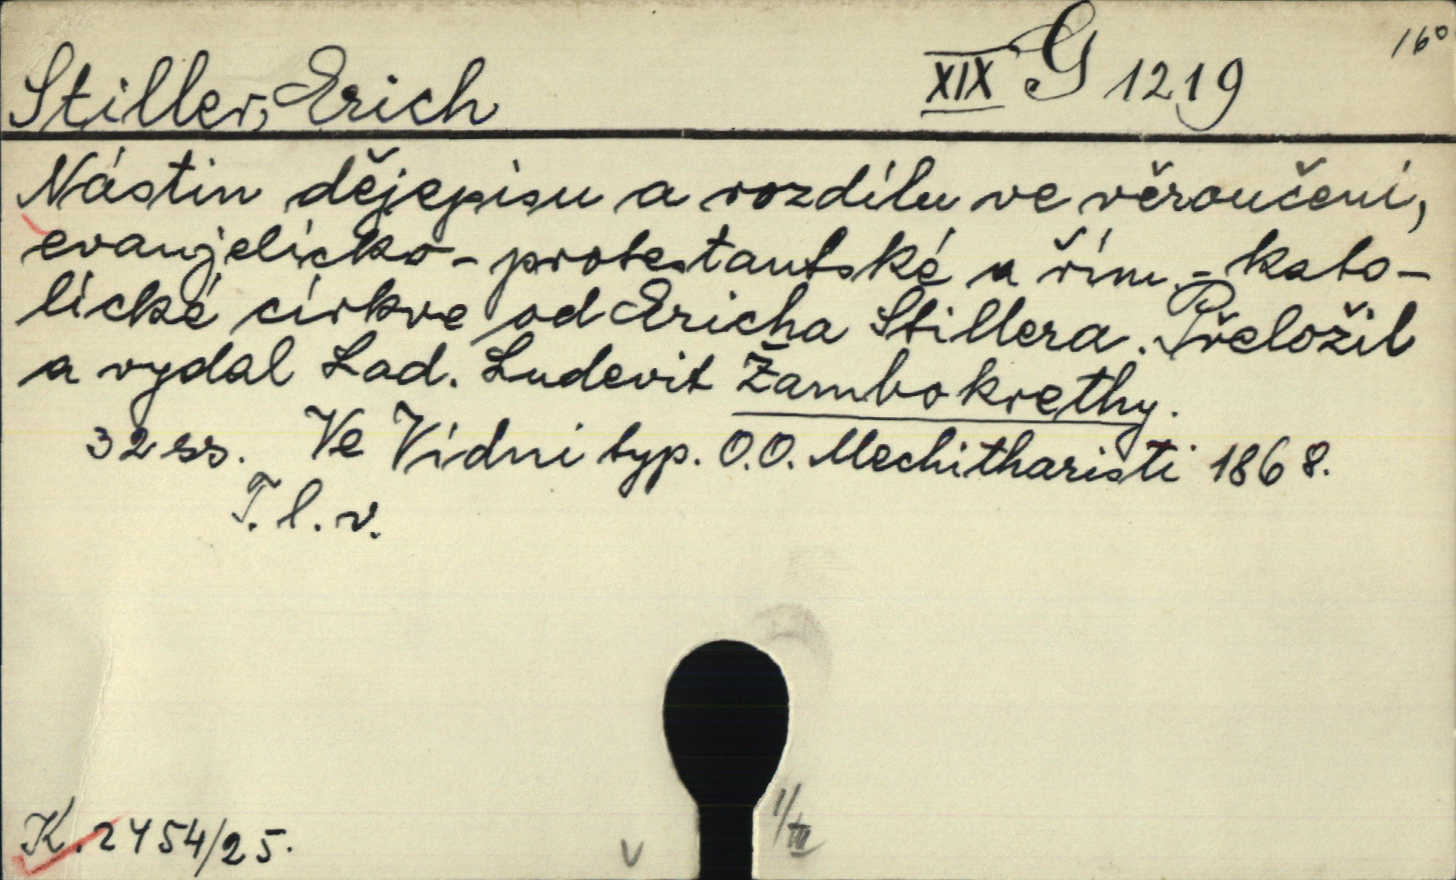 16°
Stiller, Erich XIX G 1219
Nástin dějepisu a rozdílu ve věroučení,
evanjelicko-protestantské a řím.-kato-
lické církve od Ericha Stillera. Přeložil
a vydal Lad. Ludevit Žambokrethy.
32 ss. Ve Vídni typ. O.O. Mechitharisti 1868.
T. l. v.
K. 2454/25.
V
1/III